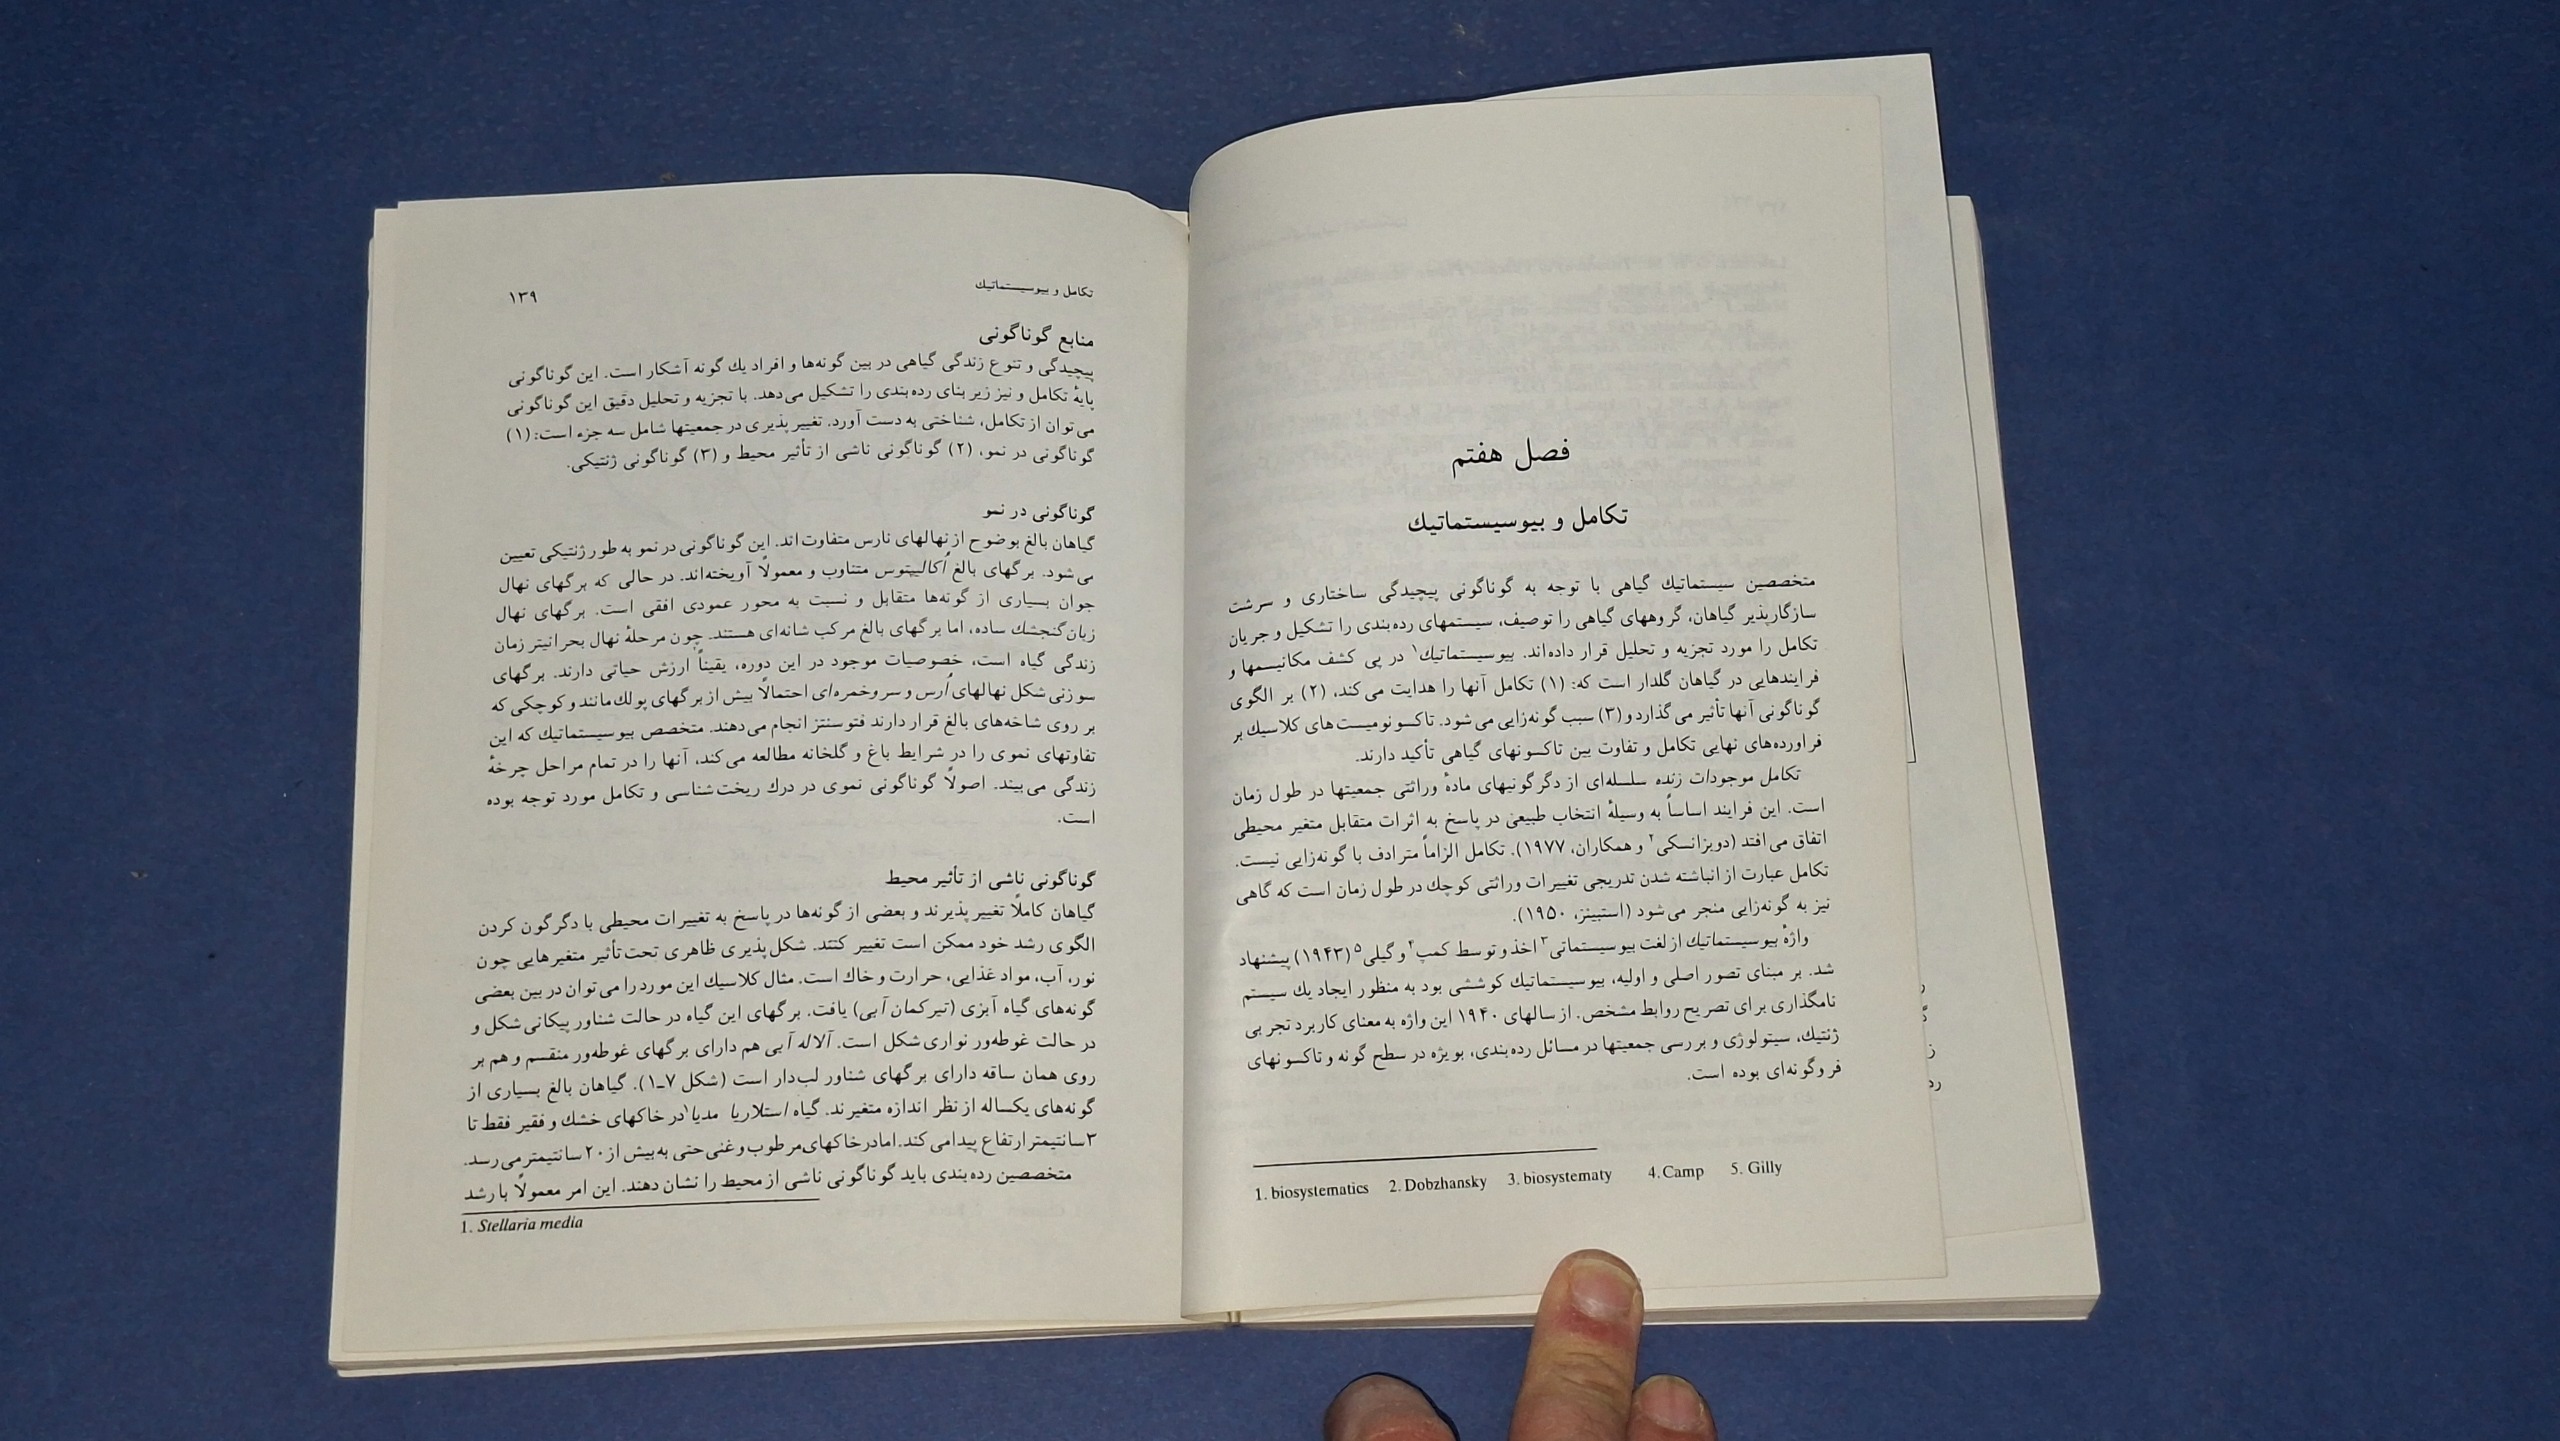 فصل هفتم
تکامل و بیوسیستماتیك
متخصصین سیستماتیك گیاهی با توجه به گوناگونی پیچیدگی ساختاری و سرشت
سازگارپذیر گیاهان، گروههای گیاهی را توصیف، سیستمهای رده‌بندی را تشکیل و جریان
تکامل را مورد تجزیه و تحلیل قرار داده‌اند. بیوسیستماتیك۱ در پی کشف مکانیسمها و
فرایندهایی در گیاهان گلدار است که: (۱) تکامل آنها را هدایت می‌کند، (۲) بر الگوی
گوناگونی آنها تأثیر می‌گذارد و (۳) سبب گونه‌زایی می‌شود. تاکسونومیست‌های کلاسیك بر
فراورده‌های نهایی تکامل و تفاوت بین تاکسونهای گیاهی تأکید دارند.
تکامل موجودات زنده سلسله‌ای از دگرگونیهای مادهٔ وراثتی جمعیتها در طول زمان
است. این فرایند اساساً به وسیلهٔ انتخاب طبیعی در پاسخ به اثرات متقابل متغیر محیطی
اتفاق می‌افتد (دوبزانسکی۲ و همکاران، ۱۹۷۷). تکامل الزاماً مترادف با گونه‌زایی نیست.
تکامل عبارت از انباشته شدن تدریجی تغییرات وراثتی کوچك در طول زمان است که گاهی
نیز به گونه‌زایی منجر می‌شود (استبینز، ۱۹۵۰).
واژهٔ بیوسیستماتیك از لغت بیوسیستماتی۳ اخذ و توسط کمپ۴ و گیلی۵ (۱۹۴۳) پیشنهاد
شد. بر مبنای تصور اصلی و اولیه، بیوسیستماتیك کوششی بود به منظور ایجاد یك سیستم
نامگذاری برای تصریح روابط مشخص. از سالهای ۱۹۴۰ این واژه به معنای کاربرد تجربی
ژنتیك، سیتولوژی و بررسی جمعیتها در مسائل رده‌بندی، بویژه در سطح گونه و تاکسونهای
فروگونه‌ای بوده است.
1. biosystematics 2. Dobzhansky 3. biosystematy 4. Camp 5. Gilly
تکامل و بیوسیستماتیك ۱۳۹
منابع گوناگونی
پیچیدگی و تنوع زندگی گیاهی در بین گونه‌ها و افراد یك گونه آشکار است. این گوناگونی
پایهٔ تکامل و نیز زیر بنای رده‌بندی را تشکیل می‌دهد. با تجزیه و تحلیل دقیق این گوناگونی
می‌توان از تکامل، شناختی به دست آورد. تغییر پذیری در جمعیتها شامل سه جزء است: (۱)
گوناگونی در نمو، (۲) گوناگونی ناشی از تأثیر محیط و (۳) گوناگونی ژنتیکی.
گوناگونی در نمو
گیاهان بالغ بوضوح از نهالهای نارس متفاوت‌اند. این گوناگونی در نمو به طور ژنتیکی تعیین
می‌شود. برگهای بالغ اُکالیپتوس متناوب و معمولاً آویخته‌اند. در حالی که برگهای نهال
جوان بسیاری از گونه‌ها متقابل و نسبت به محور عمودی افقی است. برگهای نهال
زبان‌گنجشك ساده، اما برگهای بالغ مرکب شانه‌ای هستند. چون مرحلهٔ نهال بحرانیتر زمان
زندگی گیاه است، خصوصیات موجود در این دوره، یقیناً ارزش حیاتی دارند. برگهای
سوزنی شکل نهالهای اُرس و سروخمره‌ای احتمالاً بیش از برگهای پولك‌مانند و کوچکی که
بر روی شاخه‌های بالغ قرار دارند فتوسنتز انجام می‌دهند. متخصص بیوسیستماتیك که این
تفاوتهای نموی را در شرایط باغ و گلخانه مطالعه می‌کند، آنها را در تمام مراحل چرخهٔ
زندگی می‌بیند. اصولاً گوناگونی نموی در درك ریخت‌شناسی و تکامل مورد توجه بوده
است.
گوناگونی ناشی از تأثیر محیط
گیاهان کاملاً تغییر پذیرند و بعضی از گونه‌ها در پاسخ به تغییرات محیطی با دگرگون کردن
الگوی رشد خود ممکن است تغییر کنند. شکل‌پذیری ظاهری تحت‌تأثیر متغیرهایی چون
نور، آب، مواد غذایی، حرارت و خاك است. مثال کلاسیك این مورد را می‌توان در بین بعضی
گونه‌های گیاه آبزی (تیرکمان آبی) یافت. برگهای این گیاه در حالت شناور پیکانی شکل و
در حالت غوطه‌ور نواری شکل است. آلاله آبی هم دارای برگهای غوطه‌ور منقسم و هم بر
روی همان ساقه دارای برگهای شناور لب‌دار است (شکل ۷ـ۱). گیاهان بالغ بسیاری از
گونه‌های یکساله از نظر اندازه متغیرند. گیاه استلاریا مدیا۱ در خاکهای خشك و فقیر فقط تا
۳ سانتیمتر ارتفاع پیدا می‌کند. اما در خاکهای مرطوب و غنی حتی به بیش از ۲۰ سانتیمتر می‌رسد.
متخصصین رده‌بندی باید گوناگونی ناشی از محیط را نشان دهند. این امر معمولاً با رشد
1. Stellaria media